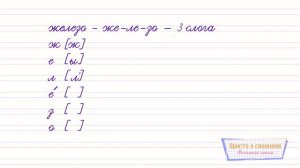 железо - же-ле-зо - 3 слога
ж [ж]
е [ы]
л [л']
е́ [ ]
з [ ]
о [ ]
Просто о сложном
Начальная школа